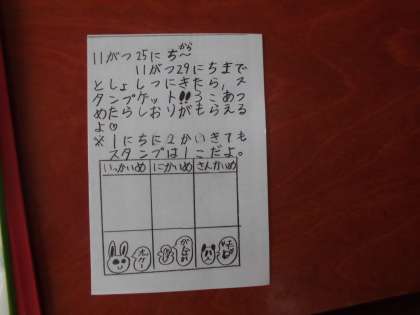 11がつ25にち~から
11がつ29にちまで
としょしつにきたら、ス
タンプゲット!!3こあつ
めたらしおりがもらえる
よ♡
※1にちに2かいきても
スタンプは1こだよ。
いっかいめ にかいめ さんかいめ
がんばれ